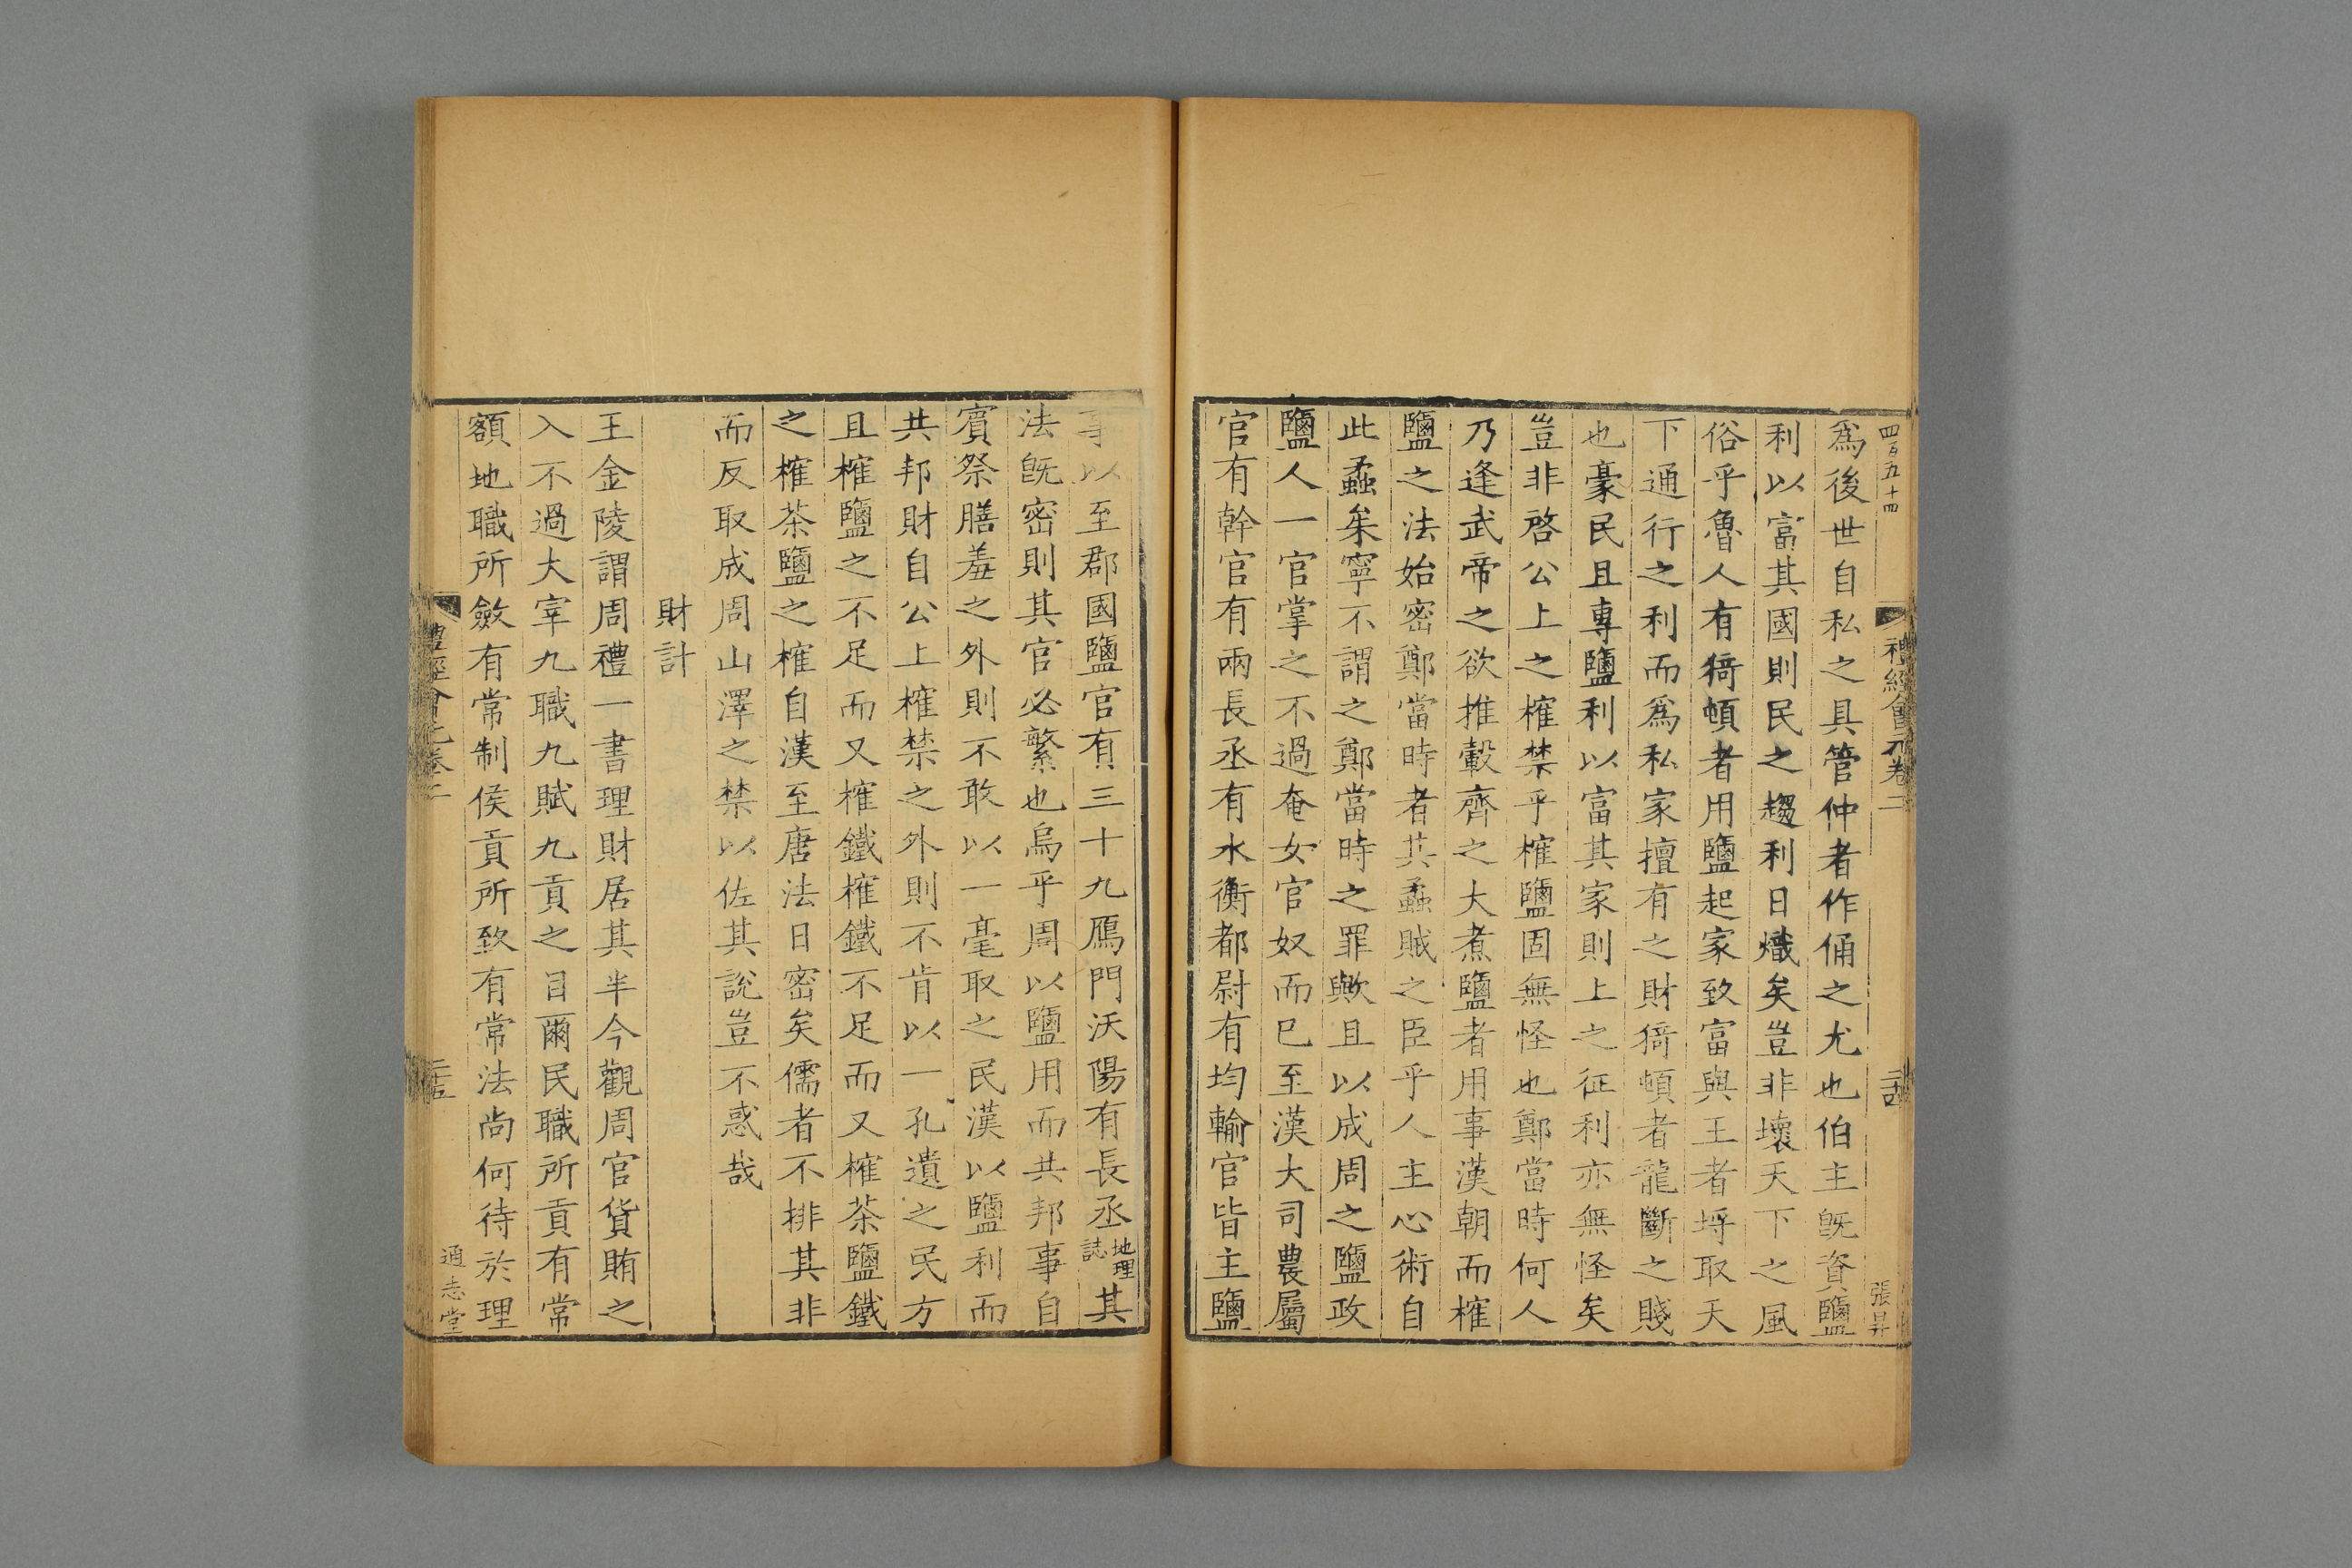 四百五十四
禮經會元卷二
二十四
張昇
爲後世自私之具管仲者作俑之尤也伯主旣資鹽
利以富其國則民之趨利日熾矣豈非壞天下之風
俗乎魯人有猗頓者用鹽起家致富與王者埒取天
下通行之利而爲私家擅有之財猗頓者龍斷之賤
也豪民且專鹽利以富其家則上之征利亦無怪矣
豈非啓公上之榷禁乎榷鹽固無怪也鄭當時何人
乃逢武帝之欲推轂齊之大煮鹽者用事漢朝而榷
鹽之法始密鄭當時者其蟊賊之臣乎人主心術自
此蟊矣寧不謂之鄭當時之罪歟且以成周之鹽政
鹽人一官掌之不過奄女官奴而巳至漢大司農屬
官有幹官有兩長丞有水衡都尉有均輸官皆主鹽
事以至郡國鹽官有三十九鴈門沃陽有長丞地理誌其
法旣密則其官必繁也烏乎周以鹽用而共邦事自
賓祭膳羞之外則不敢以一毫取之民漢以鹽利而
共邦財自公上榷禁之外則不肯以一孔遺之民方
且榷鹽之不足而又榷鐵榷鐵不足而又榷茶鹽鐵
之榷茶鹽之榷自漢至唐法日密矣儒者不排其非
而反取成周山澤之禁以佐其說豈不惑哉
財計
王金陵謂周禮一書理財居其半今觀周官貨賄之
入不過大宰九職九賦九貢之目爾民職所貢有常
額地職所斂有常制侯貢所致有常法尚何待於理
禮經會元卷二
二十五
通志堂